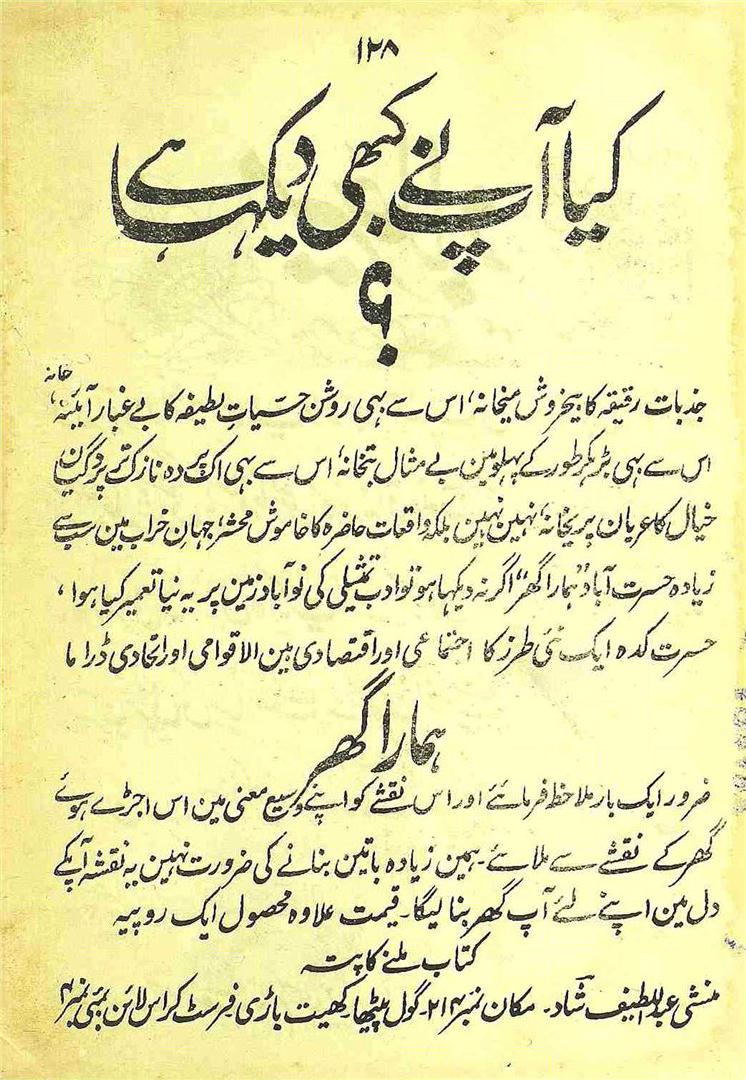 ۱۲۸
کیا آپ نے کبھی دیکہا ہے
؟
جذبات رقیقہ کا بیخروش میخانہ، اس سے بہی روشن حسیاتِ لطیفہ کا بے غبار آئینہ خانہ،
اس سے بہی بڑہکر طور کے پہلو مین بے مثال بتخانہ، اس سے بہی اک پردہ نازک تر پردگیان
خیال کا عریان پریخانہ، نہین نہین بلکہ واقعات حاضرہ کا خاموش محشر، جہانِ خراب مین سب سے
زیادہ حسرت آباد "ہمارا گھر" اگر نہ دیکہا ہو تو ادب تمثیلی کی نو آباد زمین پر یہ نیا تعمیر کیا ہوا،
حسرت کدہ ایک نئی طرز کا اجتماعی اور اقتصادی بین الاقوامی اور اتحادی ڈراما
ہمارا گھر
ضرور ایک بار ملاحظ فرمائے اور اس نقشے کو اپنے وسیع معنی مین اس اجڑے ہوئے
گھر کے نقشے سے ملائے۔ ہمین زیادہ باتین بنانے کی ضرورت نہین یہ نقشہ آپکے
دل مین اپنے لئے آپ گھر بنا لیگا۔ قیمت علاوہ محصول ایک روپیہ
کتاب ملنے کا پتہ
منشی عبداللطیف شاد۔ مکان نمبر ۲۱۴۔ گول پیٹھا۔ کھیت باڑی فرسٹ کراس لائن بمبئی نمبر ۴